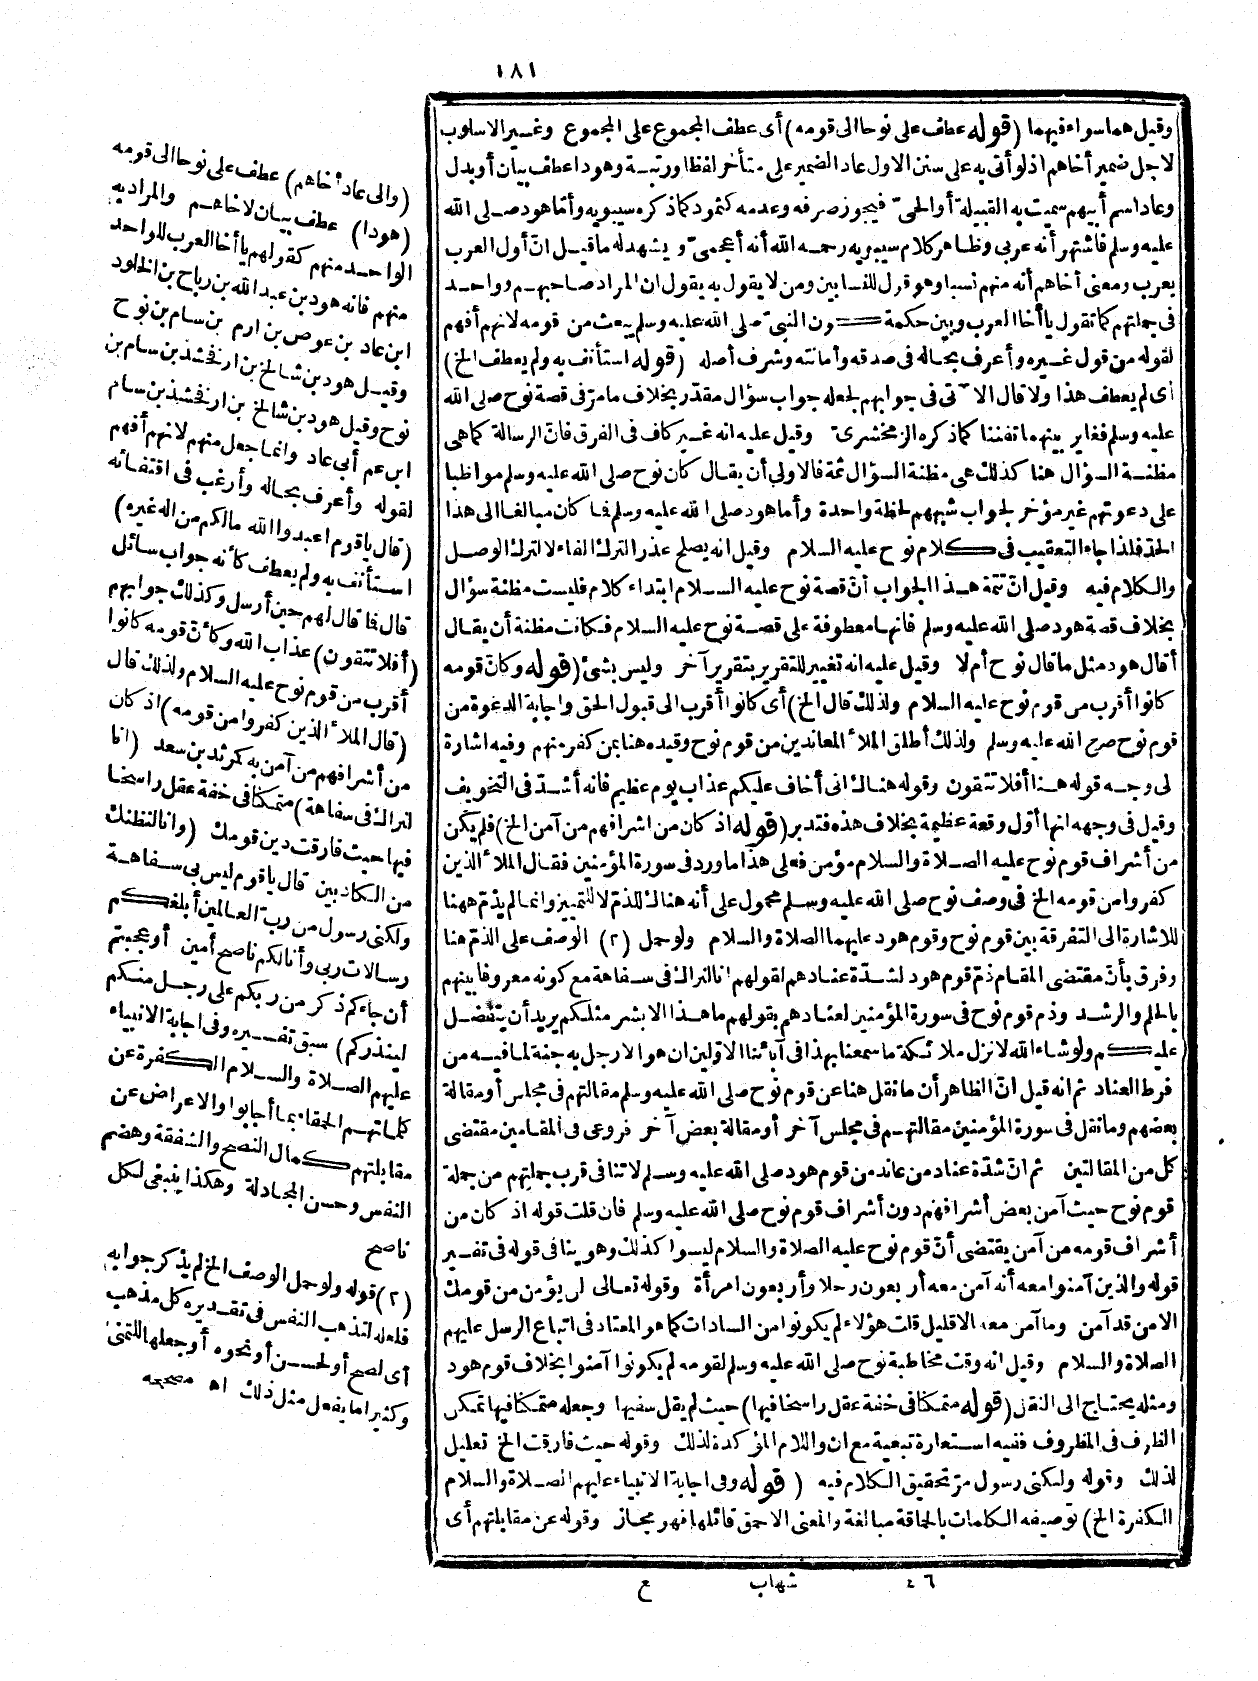 ١٨١
وقيل هما سواء فيهما (قوله عطف على نوحا الى قومه) أى عطف المجموع على المجموع وغير الاسلوب
لاجل ضمير أخاهم اذ لو أتى به على سنن الاول عاد الضمير على متأخر لفظا ورتبة وهودا عطف بيان أو بدل
وعاد اسم أبيهم سميت به القبيلة أو الحىّ فيجوز صرفه وعدمه كثمود كما ذكره سيبويه وأما هود صلى الله
عليه وسلم فاشتهر أنه عربى وظاهر كلام سيبويه رحمه الله أنه أعجمىّ و يشهد له ما قيل انّ أول العرب
يعرب ومعنى أخاهم أنه منهم نسبا وهو قول للنسابين ومن لا يقول به يقول ان المراد صاحبهم وواحد
فى جملتهم كما تقول يا أخا العرب وبين حكمة كون النبىّ صلى الله عليه وسلم يبعث من قومه لانهم أفهم
لقوله من قول غيره وأعرف بحاله فى صدقه وأمانته وشرف أصله (قوله استأنف به ولم يعطف الخ)
أى لم يعطف هذا ولا قال الآتى فى جوابهم لجعله جواب سؤال مقدّر بخلاف ما مرّ فى قصة نوح صلى الله
عليه وسلم فغاير بينهما تفننا كما ذكره الزمخشرىّ وقيل عليه انه غير كاف فى الفرق فانّ الرسالة كما هى
مظنة السؤال هنا كذلك هى مظنة السؤال ثمة فالاولى أن يقال كان نوح صلى الله عليه وسلم مواظبا
على دعوتهم غير مؤخر لجواب شبههم لحظة واحدة وأما هود صلى الله عليه وسلم فما كان مبالغا الى هذا
الحدّ فلذا جاء التعقيب فى كلام نوح عليه السلام وقيل انه يصلح عذر الترك الفاء لا لترك الوصل
والكلام فيه وقيل انّ تتمة هذا الجواب أنّ قصة نوح عليه السلام ابتداء كلام فليست مظنة سؤال
بخلاف قصة هود صلى الله عليه وسلم فانها معطوفة على قصة نوح عليه السلام فكانت مظنة أن يقال
أقال هود مثل ما قال نوح أم لا وقيل عليه انه تغيير للتقرير بتقرير آخر وليس بشئ (قوله وكانّ قومه
كانوا أقرب من قوم نوح عليه السلام ولذلك قال الخ) أى كانوا أقرب الى قبول الحق واجابة الدعوة من
قوم نوح صلى الله عليه وسلم ولذلك أطلق الملأ المعاندين من قوم نوح وقيده هنا بمن كفر منهم وفيه اشارة
لى وجه قوله هنا أفلا تتقون وقوله هناك انى أخاف عليكم عذاب يوم عظيم فانه أشدّ فى التخويف
وقيل فى وجهه انها أول وقعة عظيمة بخلاف هذه فتدبر (قوله اذ كان من اشرافهم من آمن الخ) فلم يكن
من أشراف قوم نوح عليه الصلاة والسلام مؤمن فعلى هذا ما ورد فى سورة المؤمنين فقال الملأ الذين
كفروا من قومه الخ فى وصف نوح صلى الله عليه وسلم محمول على أنه هناك للذمّ لا للتمييز وانما لم يذمّ ههنا
للاشارة الى التفرقة بين قوم نوح وقوم هود عليهما الصلاة والسلام ولو حمل (٢) الوصف على الذمّ هنا
وفرق بأنّ مقتضى المقام ذمّ قوم هود لشدّة عنادهم لقولهم انا لنراك فى سفاهة مع كونه معروفا بينهم
بالحلم والرشد وذم قوم نوح فى سورة المؤمنين لعنادهم بقولهم ما هذا الا بشر مثلكم يريد أن يتفضل
عليكم ولو شاء الله لانزل ملائكة ما سمعنا بهذا فى آبائنا الاولين ان هو الا رجل به جنة لما فيه من
فرط العناد ثم انه قيل انّ الظاهر أن ما نقل هنا عن قوم نوح صلى الله عليه وسلم مقالتهم فى مجلس أو مقالة
بعضهم وما نقل فى سورة المؤمنين مقالتهم فى مجلس آخر أو مقالة بعض آخر فروعى فى المقامين مقتضى
كل من المقالتين ثم انّ شدّة عناد من عاند من قوم هود صلى الله عليه وسلم لا تنافى قرب جملتهم من جملة
قوم نوح حيث آمن بعض أشرافهم دون أشراف قوم نوح صلى الله عليه وسلم فان قلت قوله اذ كان من
أشراف قومه من آمن يقتضى أنّ قوم نوح عليه الصلاة والسلام ليسوا كذلك وهو ينافى قوله فى تفسير
قوله والذين آمنوا معه أنه آمن معه أربعون رجلا وأربعون امرأة وقوله تعالى لن يؤمن من قومك
الا من قد آمن وما آمن معه الا قليل قلت هؤلاء لم يكونوا من السادات كما هو المعتاد فى اتباع الرسل عليهم
الصلاة والسلام وقيل انه وقت مخاطبة نوح صلى الله عليه وسلم لقومه لم يكونوا آمنوا بخلاف قوم هود
ومثله يحتاج الى النقل (قوله متمكنا فى خفة عقل راسخا فيها) حيث لم يقل سفيها وجعله متمكنا فيها تمكن
الظرف فى المظروف ففيه استعارة تبعية مع ان واللام المؤكدة لذلك وقوله حيث فارقت الخ تعليل
لذلك وقوله ولكنى رسول مرّ تحقيق الكلام فيه (قوله وفى اجابة الانبياء عليهم الصلاة والسلام
الكفرة الخ) توصيفه الكلمات بالحماقة مبالغة والمعنى الاحمق قائلها فهو مجاز وقوله عن مقابلتهم أى
(والى عاد أخاهم) عطف على نوحا الى قومه
(هودا) عطف بيان لاخاهم والمراد به
الواحد منهم كقولهم يا أخا العرب للواحد
منهم فانه هود بن عبد الله بن رباح بن الخلود
ابن عاد بن عوص بن ارم بن سام بن نوح
وقيل هود بن شالخ بن ارفخشذ بن سام بن
نوح وقيل هود بن شالخ بن ارفخشذ بن سام
ابن عم أبى عاد وانما جعل منهم لانهم أفهم
لقوله وأعرف بحاله وأرغب فى اقتفائه
(قال يا قوم اعبدوا الله مالكم من اله غيره)
استأنف به ولم يعطف كأنه جواب سائل
قال فما قال لهم حين أرسل وكذلك جوابهم
(أفلا تتقون) عذاب الله وكأنّ قومه كانوا
أقرب من قوم نوح عليه السلام ولذلك قال
(قال الملأ الذين كفروا من قومه) اذ كان
من أشرافهم من آمن به كمرثد بن سعد (انا
لنراك فى سفاهة) متمكنا فى خفة عقل راسخا
فيها حيث فارقت دين قومك (وانا لنظنك
من الكاذبين قال يا قوم ليس بى سفاهة
ولكنى رسول من رب العالمين أبلغكم
رسالات ربى وأنا لكم ناصح أمين أوعجبتم
أن جاءكم ذكر من ربكم على رجل منكم
لينذركم) سبق تفسيره وفى اجابة الانبياء
عليهم الصلاة والسلام الكفرة عن
كلماتهم الحمقاء بما أجابوا والاعراض عن
مقابلتهم كمال النصح والشفقة وهضم
النفس وحسن المجادلة وهكذا ينبغى لكل
ناصح
(٢) قوله ولو حمل الوصف الخ لم يذكر جوابه
فلعله لتذهب النفس فى تقديره كل مذهب
أى لصح أو لحسن أو نحوه أو جعلها للتمنى
وكثيرا ما يفعل مثل ذلك اه مصححه
٤٦ شهاب ع